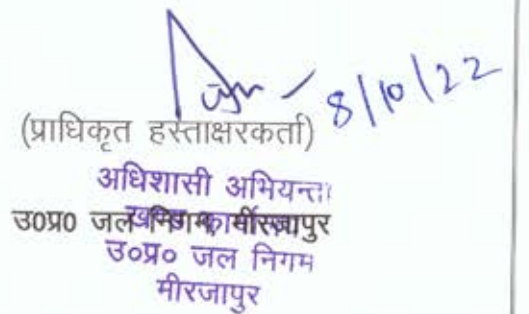 8/10/22
(प्राधिकृत हस्ताक्षरकर्ता)
अधिशासी अभियन्ता
उ0प्र0 जल निगम, मीरजापुर
उ०प्र० जल निगम
मीरजापुर